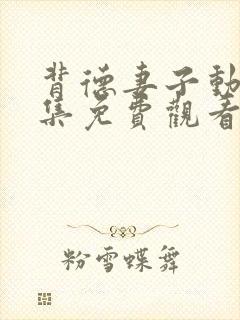 背德妻子動
集免費觀看
粉雪蝶舞